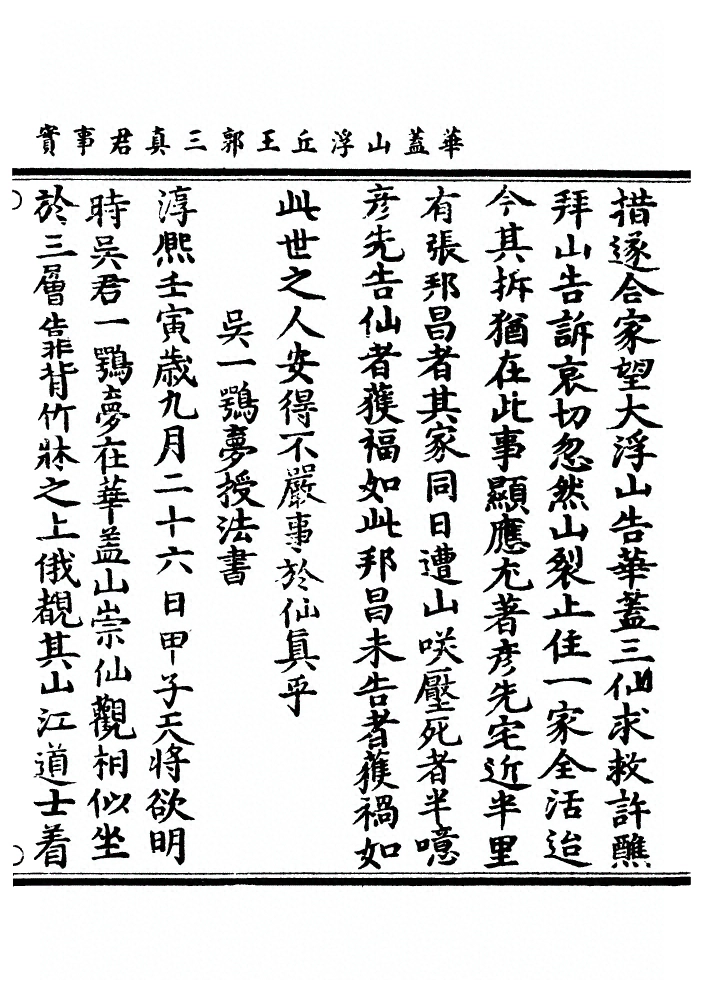 華蓋山浮丘王郭三真君事實
措遂合家望大浮山告華蓋三仙求救許醮
拜山告訴哀切忽然山裂止住一家全活迨
今其拆猶在此事顯應尤著彦先宅近半里
有張邦昌者其家同日遭山㗛壓死者半噫
彦先告仙者獲福如此邦昌未告者獲禍如
此世之人安得不嚴事於仙真乎
吳一鶚夢授法書
淳熙壬寅歲九月二十六日甲子天將欲明
時吳君一鶚夢在華蓋山崇仙觀相似坐
於三層靠背竹牀之上俄覩其山江道士着